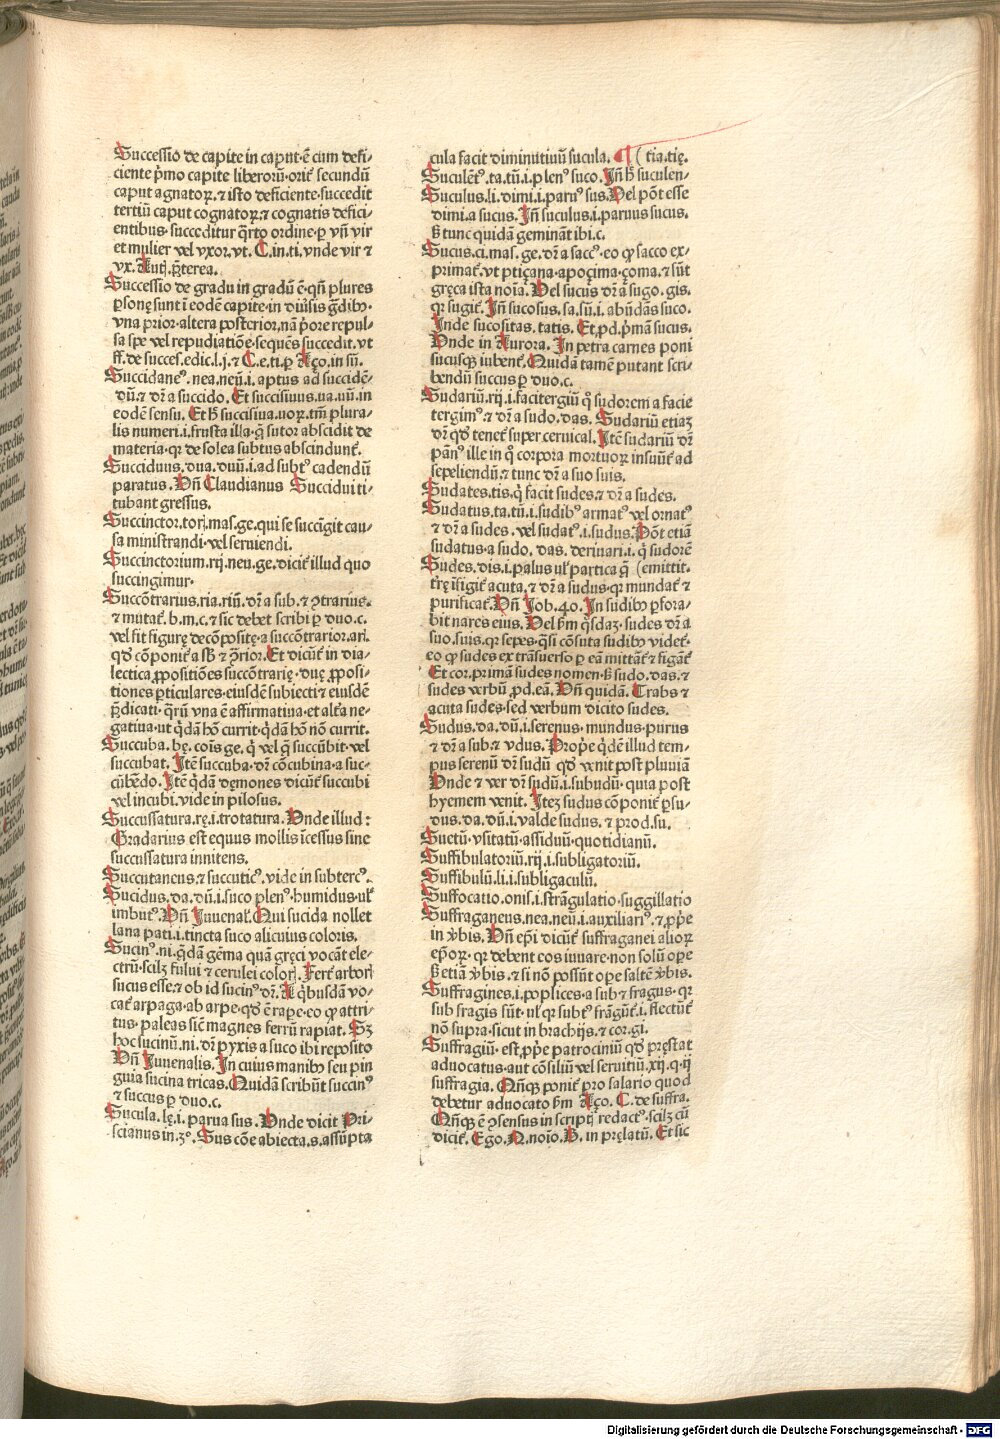 Successio de capite in caput·ē cum defi-
ciente p̄mo capite liberorū·orit᷑ secundū
caput agnatoꝝ. ⁊ isto deficiente·succedit
tertiū caput cognatoꝝ·⁊ cognatis defici-
entibus·succeditur q̄rto ordine·ꝑ vn̄ vir
et mulier vel vxor. vt. C. in. ti. vnde vir ⁊
vx. Autꝭ. p̄terea.
Successio de gradu in gradū ē·qn̄ plures
ꝑsonę sunt ī eodē capite·in diūsis ḡdibꝰ·
vna prior·altera posterior, nā p̄ore repul-
sa spe vel repudiatiōe·seq̄ues succedit. vt
ff. de succes. edic. l. j. ⁊ C. e. ti. ꝑ Aço. in sū.
Succidaneꝰ. nea. neū. i. aptus ad succidē-
dū. ⁊ dr̄ a succido. Et succisiuus. ua. uū. in
eodē sensu. Et h̄ succisiua. uoꝝ. tm̄ plura-
lis numeri. i. frusta illa·q̄ sutor abscidit de
materia·qꝛ de solea subtus abscindunt᷑.
Succiduus. dua. duū. i. ad subtꝰ cadendū
paratus. Vn̄ Claudianus Succidui ti-
tubant gressus.
Succinctor. torꝭ. mas. ge. qui se succīgit cau-
sa ministrandi·vel seruiendi.
Succinctorium. rij. neu. ge. dicit᷑ illud quo
succingimur·
Succōtrarius. ria. riū. dr̄ a sub. ⁊ ꝯtrarius.
⁊ mutat᷑. b. in. c. ⁊ sic debet scribi ꝑ duo. c.
vel sit figurę decōpositę·a succōtrarior. ari.
qď cōponit᷑ a sb̄ ⁊ ꝯ̄rior. Et dicūt᷑ in dia-
lectica ꝓpositiōes succōtrarię·duę ꝓposi-
tiones ꝑticulares·eiusdē subiecti ⁊ eiusdē
p̄dicati·q̄rū vna ē affirmatiua·et alt᷑a ne-
gatiua·ut q̇dā hō currit·q̇dā hō nō currit.
Succuba. bę. cōis ge. q̇ vel q̄ succūbit·vel
succubat. Itē succuba·dr̄ cōcubina·a suc-
cūbēdo. Itē q̇dā dęmones dicūt᷑ succubi
vel incubi. vide in pilosus.
Succussatura. rę. i. trotatura. Vnde illud:
Gradarius est equus mollis īcessus sine
succussatura innitens.
Succutaneus. ⁊ succuticꝰ. vide in subterēꝰ.
Sucidus. da. dū. i. suco plenꝰ·humidus·uł
imbutꝰ. Vn̄ Iuuenał. Qui sucida nollet
lana pati. i. tincta suco alicuius coloris.
Sucinꝰ. ni. q̇dā gēma quā gręci vocāt ele-
ctrū·scilꝫ fului ⁊ cerulei colorꝭ. Fert᷑ arborꝭ
sucus esse. ⁊ ob id sucinꝰ dr̄. A q̇busdā vo-
cat᷑ arpaga·ab arpe·qď ē rape·eo ꝙ attri-
tus·paleas sicut magnes ferrū rapiat. Sꝫ
hoc sucinū. ni. dr̄ pyxis a suco ibi reposito
Vn̄ Iuuenalis. In cuius manibꝰ ceu pin
guia sucina tricas. Quidā scribūt succinꝰ
⁊ succus ꝑ duo. c.
Sucula. lę. i. parua sus. Vnde dicit Pri-
scianus in. 3ꝰ. Sus cōe abiecta. s. assūpta
cula facit diminutiuū sucula. ¶ (tia. tię.
Suculētꝰ. ta. tū. i. plenꝰ suco. In̄ h̄ suculen-
Suculus. li. dimi. i. paruꝰ sus. Vel pōt esse
dimi. a sucus. In̄ suculus. i. paruus sucus.
s̄ tunc quidā gemināt ibi. c.
Sucus. ci. mas. ge. dr̄ a saccꝰ·eo ꝙ sacco ex-
primat᷑. vt ptiçana·apoçima·çoma. ⁊ sūt
gręca ista noīa. Vel sucus dr̄ a sugo. gis.
qꝛ sugit᷑. In̄ sucosus. sa. sū. i. abūdās suco.
Inde sucositas. tatis. Et ꝓd. p̄mā sucus.
Vnde in Aurora. In petra carnes poni
sucusqꝫ iubent᷑. Quidā tamē putant scri-
bendū succus ꝑ duo. c.
Sudariū. rij. i. facitergiū q̇ sudorem a facie
tergimꝰ. ⁊ dr̄ a sudo. das. Sudariū etiaꝫ
dr̄ qď tenet᷑ super cervical. Itē sudariū dr̄
pānꝰ ille in q̇ corpora mortuoꝝ insuūt᷑ ad
sepeliendū. ⁊ tunc dr̄ a suo suis.
Sudates. tis. q̇ facit sudes. ⁊ dr̄ a sudes.
Sudatus. ta. tū. i. sudibꝰ armatꝰ vel ornatꝰ
⁊ dr̄ a sudes. vel sudatꝰ. i. sudus. Pōt etiā
sudatus·a sudo. das. deriuari. i. q̇ sudorē
Sudes. dis. i. palus uł partica q̄ (emittit.
t᷑rę īfigit᷑ acuta. ⁊ dr̄ a sudus·qꝛ mundat᷑ ⁊
purificat᷑. Vn̄ Iob. 40. In sudibꝰ ꝑfora-
bit nares eius. Vel scd̄m q̇sdaꝫ·sudes dr̄ a
suo. suis. qꝛ sepes·q̄si cōsuta sudibꝰ videt᷑.
eo ꝙ sudes ex trāsuerso ꝑ eā mittāt᷑ ⁊ figāt᷑
Et cor. primā sudes nomen·s̄ sudo. das. ⁊
sudes verbū ꝓd. eā. Vn̄ quidā. Trabs ⁊
acuta sudes·sed verbum dicito sudes.
Sudus. da. dū. i. serenus·mundus·purus
⁊ dr̄ a sub. ⁊ vdus. Prop̄e q̇dē illud tem-
pus serenū dr̄ sudū qď venit post pluuiā
Vnde ⁊ ver dr̄ sudū. i. subudū·quia post
hyemem venit. Iteꝫ sudus cōponit᷑ ꝑsu-
dus. da. dū. i. valde sudus. ⁊ prod. su.
Suetū·vsitatū·assiduū·quotidianū.
Suffibulatoriū. rij. i. subligatoriū.
Suffibulū. li. i. subligaculū.
Suffocatio. onis. i. strāgulatio·suggillatio
Suffraganeus. nea. neū. i. auxiliariꝰ. ⁊ ꝓp̄e
in v̄bis. Vn̄ ep̄i dicūt᷑ suffraganei alioꝝ
ep̄oꝝ·qꝛ debent eos iuuare·non solū ope
s̄ etiā v̄bis. ⁊ si nō possūt ope saltē v̄bis.
Suffragines. i. poplices·a sub ⁊ fragus·qꝛ
sub fragis sūt·uł qꝛ subtꝰ frāgūt᷑. i. flectūt᷑
nō supra·sicut in brachijs. ⁊ cor. gi.
Suffragiū·est·ꝓp̄e patrociniū qď pręstat
aduocatus·aut cōsiliū vel seruitiū. xij. q. ij
suffragia. Qn̄qꝫ ponit᷑ pro salario quod
debetur aduocato scd̄m Aço. C. de suffra.
Qn̄qꝫ ē ꝯsensus in scriptꝭ redactꝰ·scilꝫ cū
dicit᷑. Ego. N. noīo. B. in pręlatū. Et sic
Digitalisierung gefördert durch die Deutsche Forschungsgemeinschaft - DFG